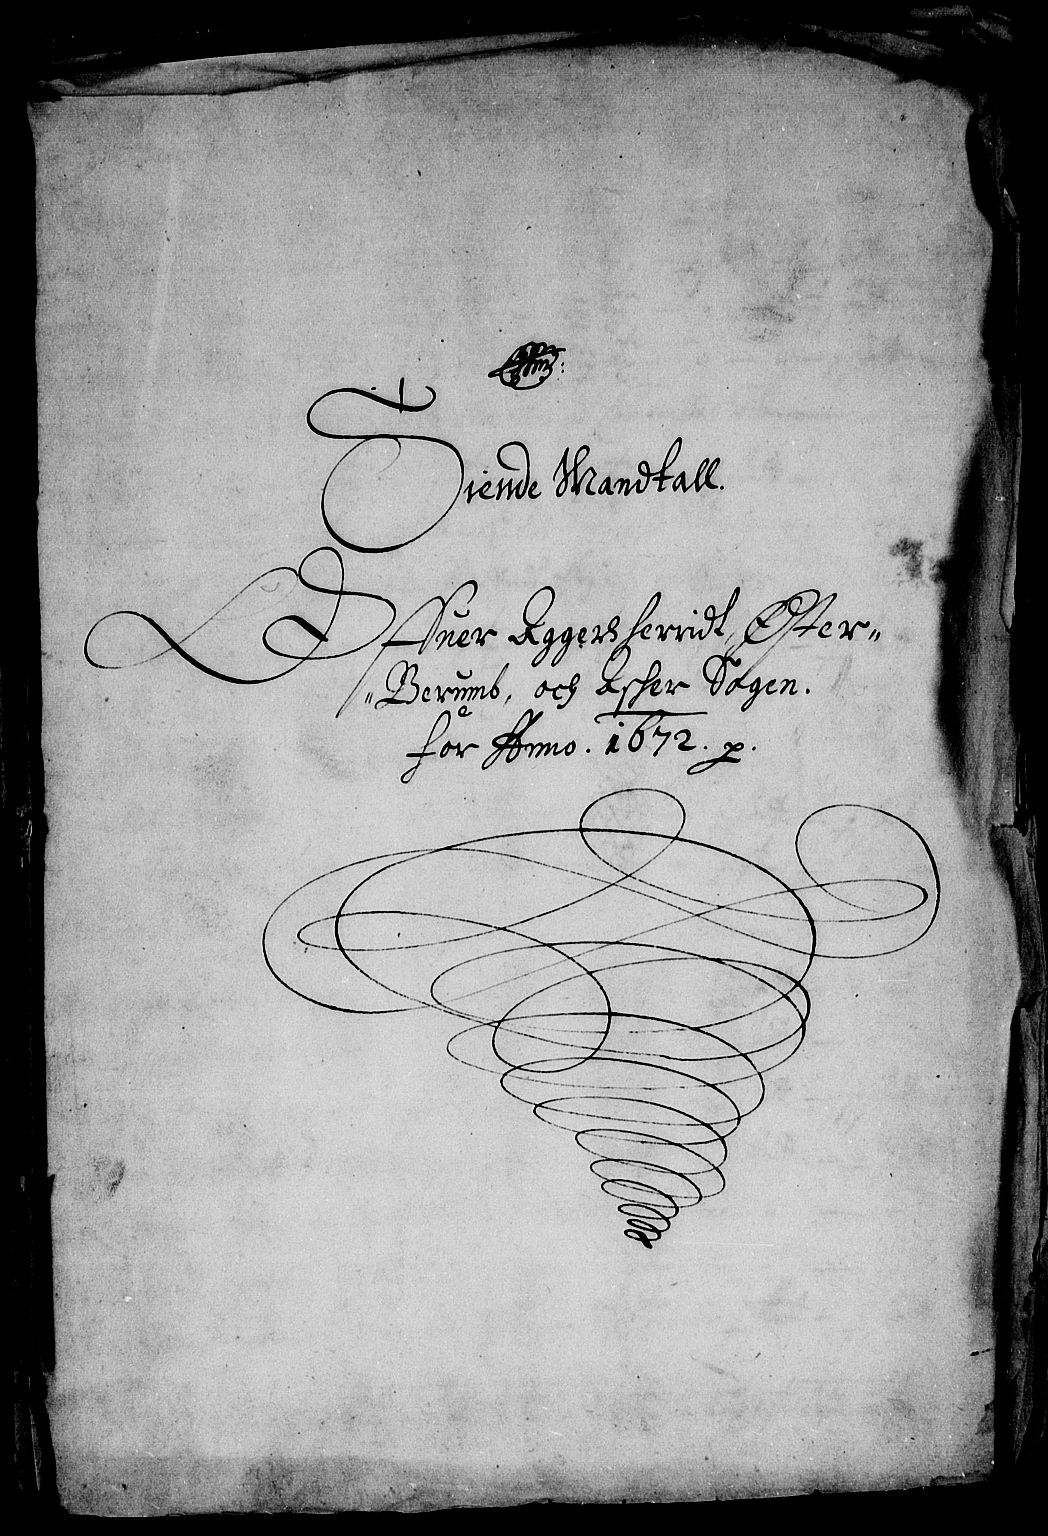 Tiende Mandtall.
Offuer Aggers herridt, Øster-
Berumb, och Asker Sogen.
for Anno. 1672. p.